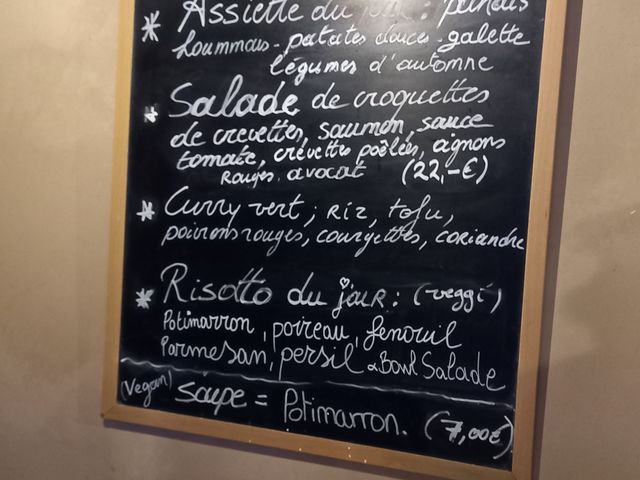 * Assiette du jour : panais
hoummous - patates douces - galette
légumes d'automne
* Salade de croquettes
de crevettes, saumon, sauce
tomate, crévettes poêlées, oignons
Rouges. avocat (22,-€)
* Curry vert ; Riz, tofu,
poivrons rouges, courgettes, coriandre
* Risotto du jour : (veggi)
Potimarron, poireau, fenouil
Parmesan, persil & Bowl Salade
(Vegan) soupe = Potimarron. (7,00€)